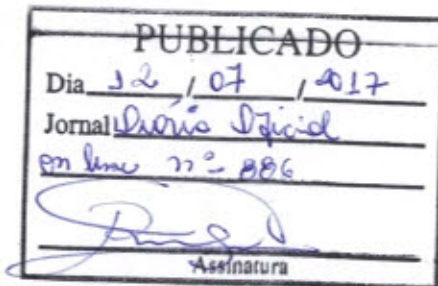 PUBLICADO
Dia 12 / 07 / 2017
Jornal Diário Oficial
on line nº 886
Assinatura